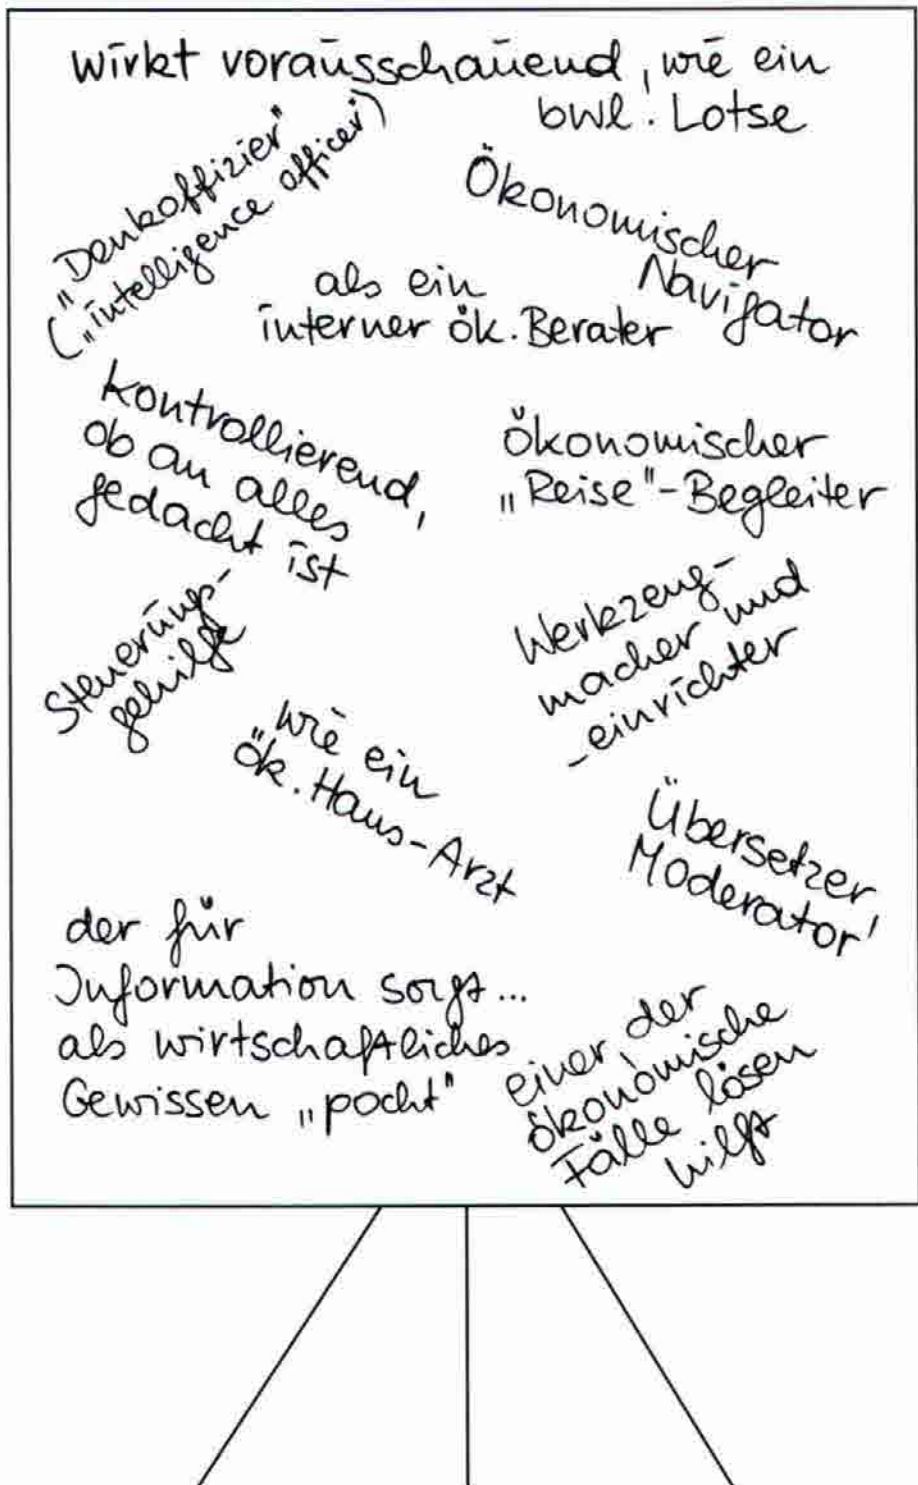 wirkt vorausschauend, wie ein
bwl. Lotse
„Denkoffizier"
(„intelligence officer")
Ökonomischer
Navigator
als ein
interner ök. Berater
kontrollierend,
ob an alles
gedacht ist
Ökonomischer
„Reise"-Begleiter
Steuerungs-
gehilfe
Werkzeug-
macher und
-einrichter
„wie ein
ök. Haus-Arzt
Übersetzer
Moderator
der für
Information sorgt...
als wirtschaftliches
Gewissen „pocht"
einer, der
ökonomische
Fälle lösen
hilft